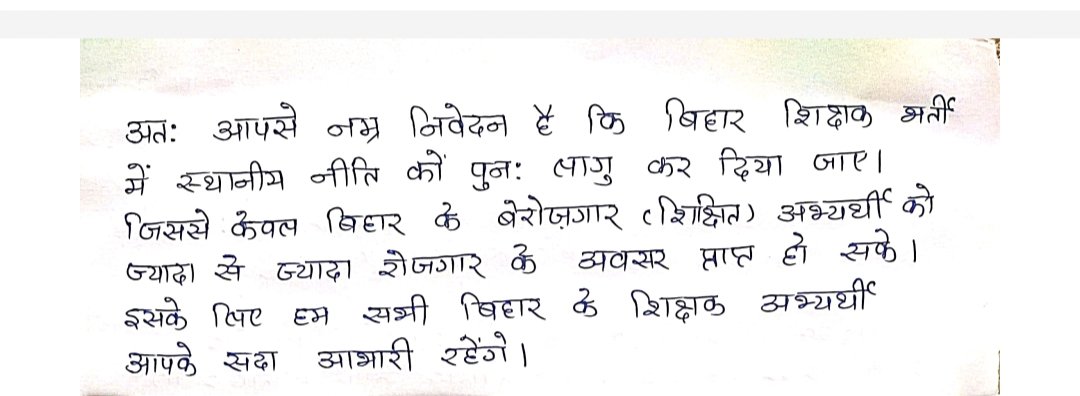 अतः आपसे नम्र निवेदन है कि बिहार शिक्षक भर्ती
में स्थानीय नीति को पुनः लागु कर दिया जाए।
जिससे केवल बिहार के बेरोज़गार (शिक्षित) अभ्यर्थी को
ज्यादा से ज्यादा रोजगार के अवसर प्राप्त हो सके।
इसके लिए हम सभी बिहार के शिक्षक अभ्यर्थी
आपके सदा आभारी रहेंगे।